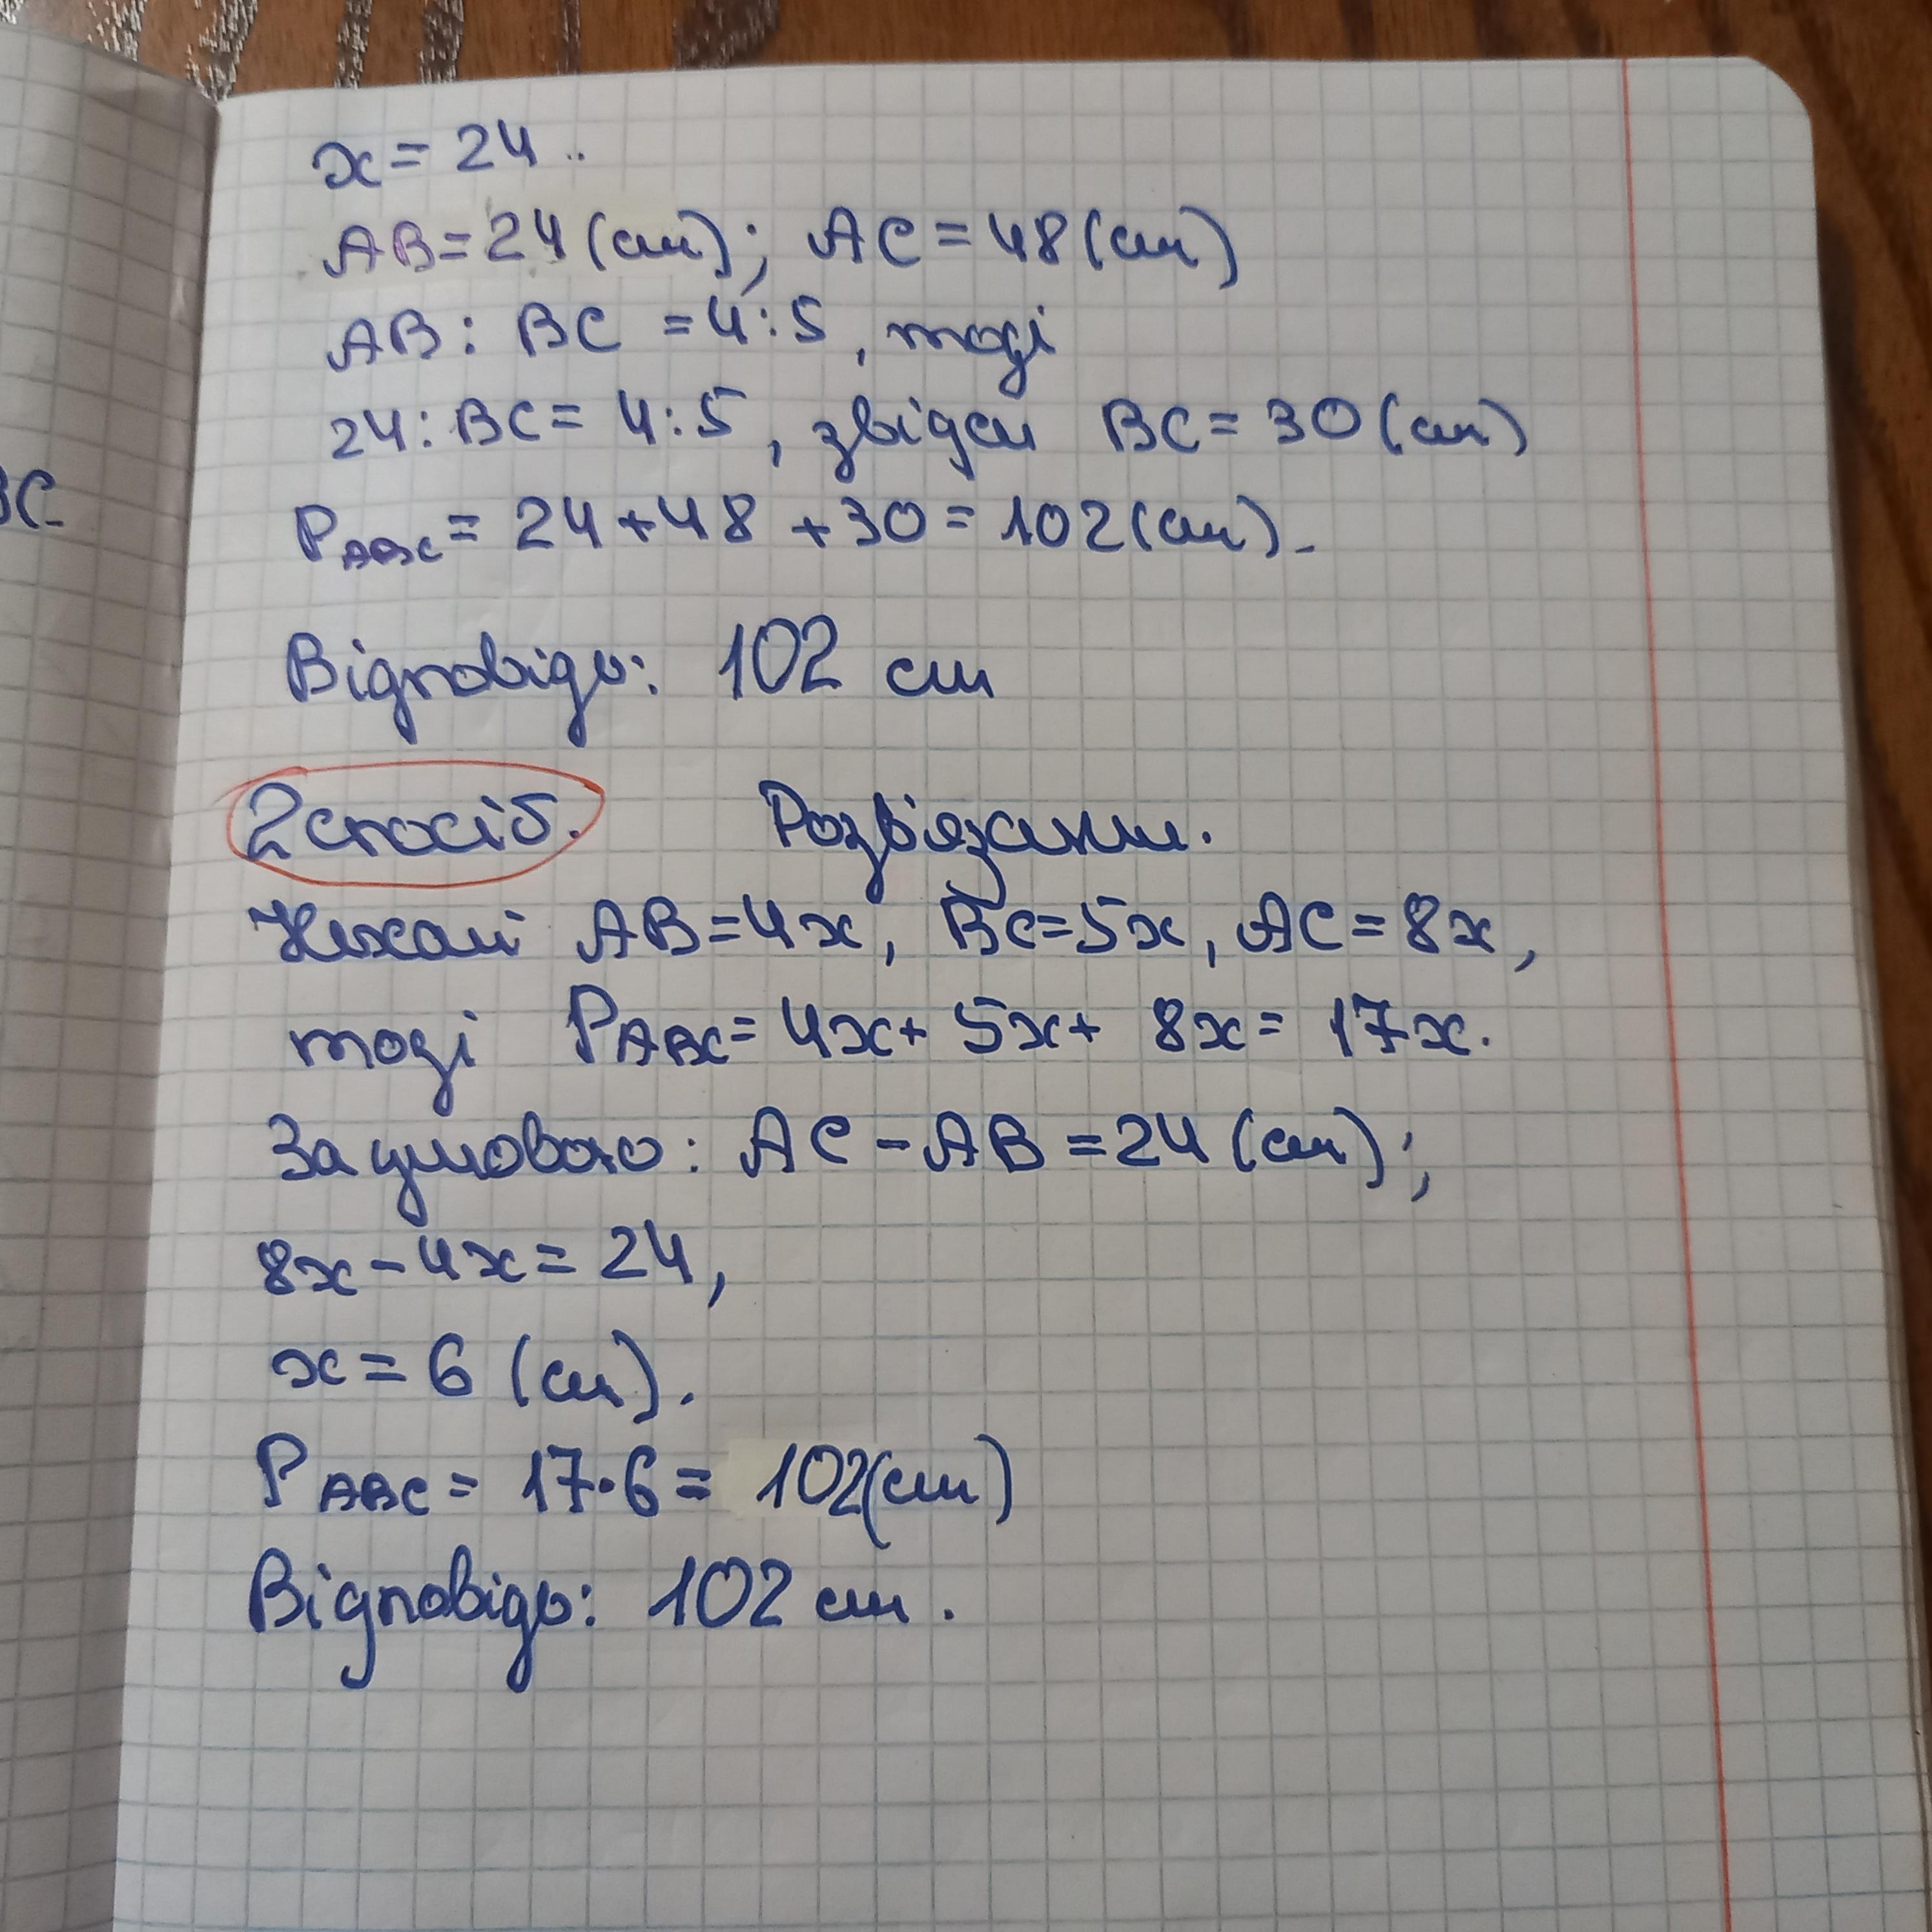 x = 24.
AB = 24 (см); AC = 48 (см)
AB : BC = 4 : 5, тоді
24 : BC = 4 : 5, звідси BC = 30 (см)
P ABC = 24 + 48 + 30 = 102 (см).
Відповідь: 102 см
2 спосіб. Розв'язання.
Нехай AB = 4x, BC = 5x, AC = 8x,
тоді P ABC = 4x + 5x + 8x = 17x.
За умовою: AC - AB = 24 (см);
8x - 4x = 24,
x = 6 (см).
P ABC = 17 · 6 = 102 (см)
Відповідь: 102 см.